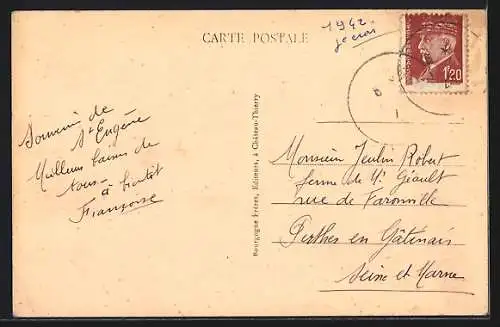 CARTE POSTALE
1942
1.20
Souvenir de
St Eugène
Meilleurs baisers de
tous
à bientôt
Françoise
Bourgogne Frères, Editeurs, à Château-Thierry
Monsieur Jeulin Robert
ferme de Mr Géault
rue de Faronville
Perthes en Gâtinais
Seine et Marne